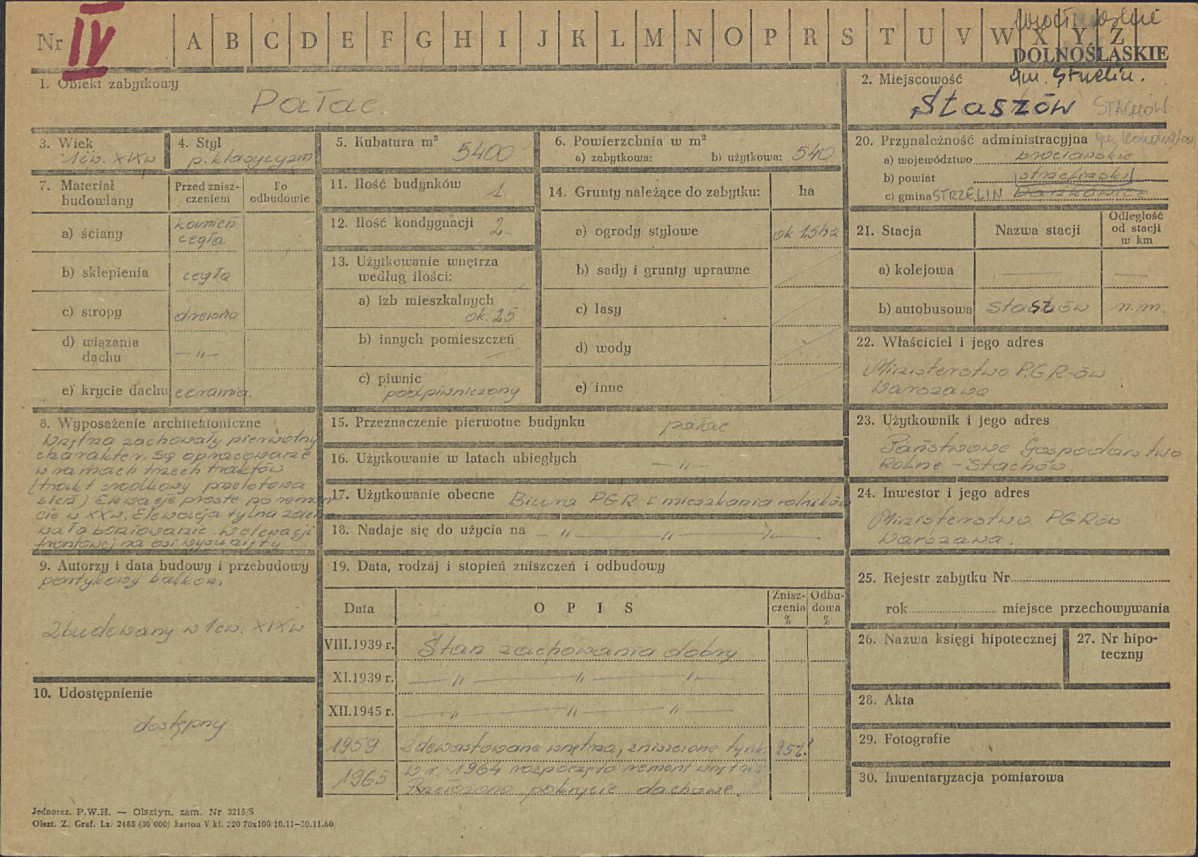 Nr IV A B C D E F G H I J K L M N O P R S T U V W X Y Z
DOLNOŚLĄSKIE
gm. Strzelin.
1. Obiekt zabytkowy
Pałac
2. Miejscowość
Staszów STACHÓW
3. Wiek
1 ćw. XIX w
4. Styl
p. klasycyzm
5. Kubatura m³ 5400
6. Powierzchnia w m²
a) zabytkowa: b) użytkowa: 540
7. Materiał budowlany
Przed zniszczeniem
Po odbudowie
a) ściany kamień cegła
b) sklepienia cegła
c) stropy drewno
d) wiązania dachu —〃—
e) krycie dachu ceramia.
8. Wyposażenie architektoniczne
Wnętrza zachowały pierwotny
charakter. Są opracowane
w ramach trzech traktów
(trakt środkowy przelotowa
sień) Elewacje proste po remon
cie w XX w. Elewacja tylna
boniowanie. W elewacji
frontowej na osi wysunięty
9. Autorzy i data budowy i przebudowy
portykowy balkon.
Zbudowany w 1 ćw. XIX w
10. Udostępnienie
dostępny
11. Ilość budynków 1
12. Ilość kondygnacji 2
13. Użytkowanie wnętrza
według ilości:
a) izb mieszkalnych
ok. 25
b) innych pomieszczeń
c) piwnic
podpiwniczony
14. Grunty należące do zabytku: ha
a) ogrody stylowe ok 15 ha
b) sady i grunty uprawne
c) lasy
d) wody
e) inne
15. Przeznaczenie pierwotne budynku pałac
16. Użytkowanie w latach ubiegłych —〃—
17. Użytkowanie obecne Biura PGR i mieszkania rolników
18. Nadaje się do użycia na —〃— 〃
19. Data, rodzaj i stopień zniszczeń i odbudowy
Data OPIS Zniszczenia % Odbudowa %
VIII.1939 r. Stan zachowania dobry
XI.1939 r. —〃— 〃 — 〃—
XII.1945 r. —〃— 〃 — 〃—
1959 zdewastowane wnętrza, zniszczone tynki 25%
1965 W r. 1964 rozpoczęto remont wnętrz
pokrycie dachowe.
20. Przynależność administracyjna
a) województwo wrocławskie
b) powiat strzeliński
c) gmina STRZELIN
21. Stacja Nazwa stacji Odległość od stacji w km
a) kolejowa — —
b) autobusowa Staszów n.m.
22. Właściciel i jego adres
Ministerstwo P.G.R-ów
Warszawa
23. Użytkownik i jego adres
Państwowe Gospodarstwo
Rolne – Stachów
24. Inwestor i jego adres
Ministerstwo PGRów
Warszawa.
25. Rejestr zabytku Nr
rok miejsce przechowywania
26. Nazwa księgi hipotecznej
27. Nr hipoteczny
28. Akta
29. Fotografie
30. Inwentaryzacja pomiarowa
Jednoraz. P.W.H. — Olsztyn, zam. Nr 3215/S
Olszt. Z. Graf. Lz. 2485 (30 000) karton V kl. 220 70x100 10.11—30.11.60